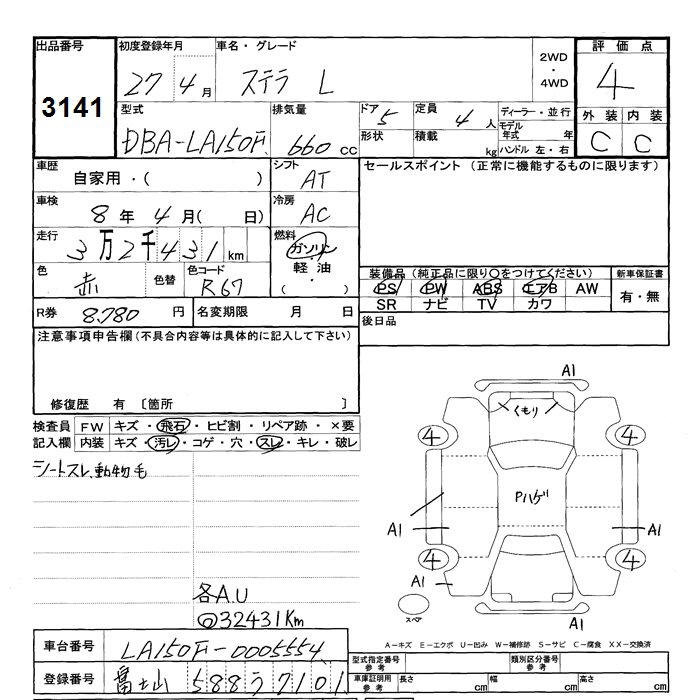 出品番号 3141
初度登録年月 27年 4月
車名・グレード ステラ L
2WD・4WD
評価点 4
外装 C 内装 C
型式 DBA-LA150F
排気量 660 cc
ドア 5
形状
定員 4 人
積載 kg
ディーラー・並行
モデル年式 年
ハンドル 左・右
車歴 自家用・( )
シフト AT
セールスポイント (正常に機能するものに限ります)
車検 8年 4月( 日)
冷房 AC
走行 3万2千431km
燃料 ガソリン・軽油・( )
色 赤
色替
色コード R67
装備品 (純正品に限り○をつけてください)
PS PW ABS エアB AW
SR ナビ TV カワ
新車保証書 有・無
R券 8.780 円
名変期限 月 日
後日品
注意事項申告欄(不具合内容等は具体的に記入して下さい)
修復歴 有 〔箇所 〕
検査員記入欄
FW キズ・飛石・ヒビ割・リペア跡・×要
内装 キズ・汚レ・コゲ・穴・スレ・キレ・破レ
シートスレ、動物毛
各A.U
◎32431Km
A1
くもり
4 4
Pハゲ
A1 A1
4 4
A1
スペア
A1
A-キズ E-エクボ U-凹み W-補修跡 S-サビ C-腐食 XX-交換済
車台番号 LA150F-0005554
登録番号 富士山 588 ワ 7101
型式指定番号 参考
類別区分番号 参考
車庫証明用 参考 長さ cm 幅 cm 高さ cm